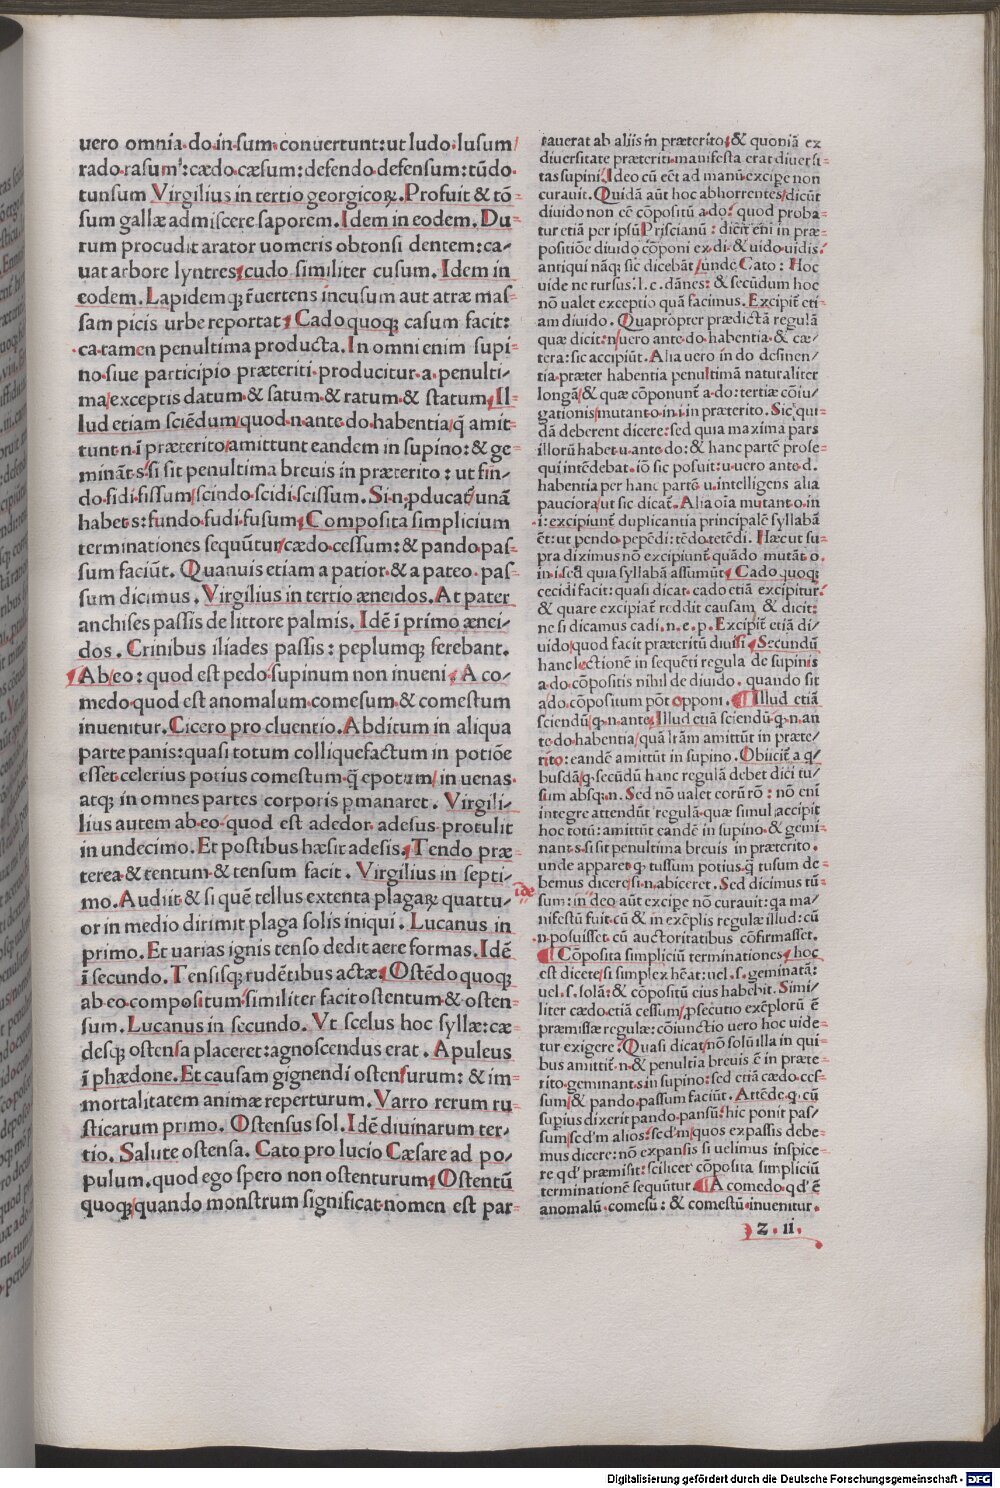 uero omnia·do·in·sum·conuertunt:ut ludo·lusum/
rado·rasum:cædo·cæsum:defendo·defensum:tūdo·
tunsum Virgilius in tertio georgicoꝝ.Profuit & tō-
sum gallæ admiscere saporem.Idem in eodem.Du-
rum procudit arator uomeris obtonsi dentem:ca/
uat arbore lyntres/cudo similiter cusum.Idem in
eodem.Lapidemqꝫ r̄uertens incusum aut atræ mas-
sam picis urbe reportat Cado quoqꝫ casum facit:
·ca·tamen penultima producta.In omni enim supi-
no·siue participio præteriti·producitur·a·penulti-
ma/exceptis datum·& satum·& ratum·& statum/Il-
lud etiam sciēdum/quod·n·ante·do·habentia/q̄ amit-
tunt·n·i præterito/amittunt eandem in supino:& ge-
mināt·s·si sit penultima breuis in præterito : ut fin/
do·fidi·fissum/scindo·scidi·scissum.Si·n·ꝓducat̄·unā
habet·s:fundo·fudi·fusum/Composita simplicium
terminationes sequūtur/cædo·cessum:& pando·pas-
sum faciūt.Quanuis etiam a patior·& a pateo·pas-
sum dicimus.Virgilius in tertio æneidos.At pater
anchises passis de littore palmis.Idē ī primo ænei/
dos.Crinibus iliades passis:peplumqꝫ ferebant.
Ab/eo: quod est pedo·supinum non inueni A co/
medo·quod est anomalum·comesum·& comestum
inuenitur.Cicero pro cluentio.Abditum in aliqua
parte panis:quasi totum colliquefactum in potiōe
esset·celerius potius comestum·q̄ epotum/in uenas·
atqꝫ in omnes partes corporis pmanaret.Virgili/
lius autem ab·eo·quod est adedor·adesus·protulit
in undecimo.Et postibus hæsit adesis.Tendo præ-
terea·& tentum·& tensum facit.Virgilius in septi-
mo.Audiit·& si quē tellus extenta plagaꝝ quattu/
or in medio dirimit plaga solis iniqui.Lucanus in
primo.Et uarias ignis tenso dedit aere formas.Idē
ī secundo.Tensisqꝫ rudētibus actæ Ostēdo quoqꝫ
ab·eo·compositum·similiter facit ostentum·& osten-
sum.Lucanus in secundo.Vt scelus hoc syllæ:cæ-
desqꝫ ostensa placeret:agnoscendus erat.Apuleus
ī phædone.Et causam gignendi ostensurum:& im-
mortalitatem animæ reperturum.Varro rerum ru-
sticarum primo.Ostensus sol.Idē diuinarum ter-
tio.Salute ostensa.Cato pro lucio Cæsare ad po/
pulum.quod ego spero non ostenturum/Ostentū
quoqꝫ/quando monstrum significat·nomen est par-
tauerat ab aliis in præterito/& quoniā ex
diuersitate præteriti·manifesta erat diuersi-
tas supini.Ideo cū eēt ad manū·excipe non
curauit.Quidā aūt hoc abhorrentes/dicūt
diuido non eē cōpositū a·do: quod proba-
tur etiā per ipsū Priscianū : dicit eni in præ-
positiōe diuido cōponi ex·di·& uido·uidis:
antiqui nāqꝫ sic dicebāt/unde Cato : Hoc
uide ne rursus:l.c.dānes: & secūdum hoc
nō ualet exceptio quā facimus.Excipit̄ eti-
am diuido.Quapropter prædictā regulā
quæ dicit:n/uero ante·do·habentia·& cæ/
tera:sic accipiūt.Alia uero in do desinen/
tia·præter habentia penultimā naturaliter
longā/& quæ cōponunt̄ a·do:tertiæ cōiu/
gationis/mutant·o·in·i·in præterito.Sic qui-
dā deberent dicere:sed quia maxima pars
illorū habet·u·ante·do:& hanc partē prose-
qui intēdebat·iō sic posuit:u·uero ante·d.
habentia per hanc partē u·intelligens alia
pauciora/ut sic dicat̄.Alia oīa mutant·o·in
·i:excipiunt̄ duplicantia principalē syllabā
ēt:ut pendo·pepēdi:tēdo·tetēdi.Hæc ut su-
pra diximus nō excipiunt̄ quādo mutāt·o.
in·i·sed quia syllabā assumūt Cado quoqꝫ
cecidi facit:quasi dicat·cado etiā excipitur:
& quare excipiat̄ reddit causam & dicit:
ne si dicamus cadi.n.e.p.Excipit̄ etiā di/
uido/quod facit præteritū diuisi Secundū
hanc lectionē in sequēti regula de supinis
a·do·cōpositis nihil de diuido·quando sit
a·do·cōpositum pōt opponi.Illud etiā
sciendū/q·n·ante/Illud etiā sciendū·q·n·an
te·do·habentia/quā lr̄am amittūt in præte/
rito:eandē amittūt in supino.Obiicit̄ a q/
busdā/q·secūdū hanc regulā debet dici tu/
sum absq·n.Sed nō ualet eorū rō : nō eni
integre attendūt regulā·quæ simul accipit
hoc totū:amittūt eandē in supino·& gemi/
nant·s·si sit penultima breuis in præterito.
unde apparet·q·tussum potius·q̄ tusum de-
bemus dicere/si·n·abiceret.Sed dicimus tū-
sum:in deo aūt excipe nō curauit:qa ma/
nifestū fuit·cū & in exēplis regulæ illud:cū
·n·posuisset·cū auctoritatibus cōfirmasset.
Cōposita simpliciū terminationes/hoc
est dicete/si simplex hēat:uel.s.geminatā:
uel.s.solā:& cōpositū eius habebit.Simi/
liter cædo etiā cessum/ꝓsecutio exēplorū ē
præmissæ regulæ:cōiunctio uero hoc uide-
tur exigere.Quasi dicat/nō solū illa in qui-
bus amittit̄·n·& penultia breuis ē in præte-
rito·geminant·s·in supino:sed etiā cædo·ces-
sum/& pando·passum faciūt.Attēde·q·cū
supius dixerit pando·pansū:hic ponit pas/
sum/sed'm alios:sed'm/quos expassis debe-
mus dicere:nō expansis si uelimus inspice-
re qd' præmisit:scilicet cōposita simpliciū
terminationē sequūtur A comedo·qd' ē
anomalū·comesū:& comestū·inuenitur.
idē
z.ii.
Digitalisierung gefördert durch die Deutsche Forschungsgemeinschaft - DFG